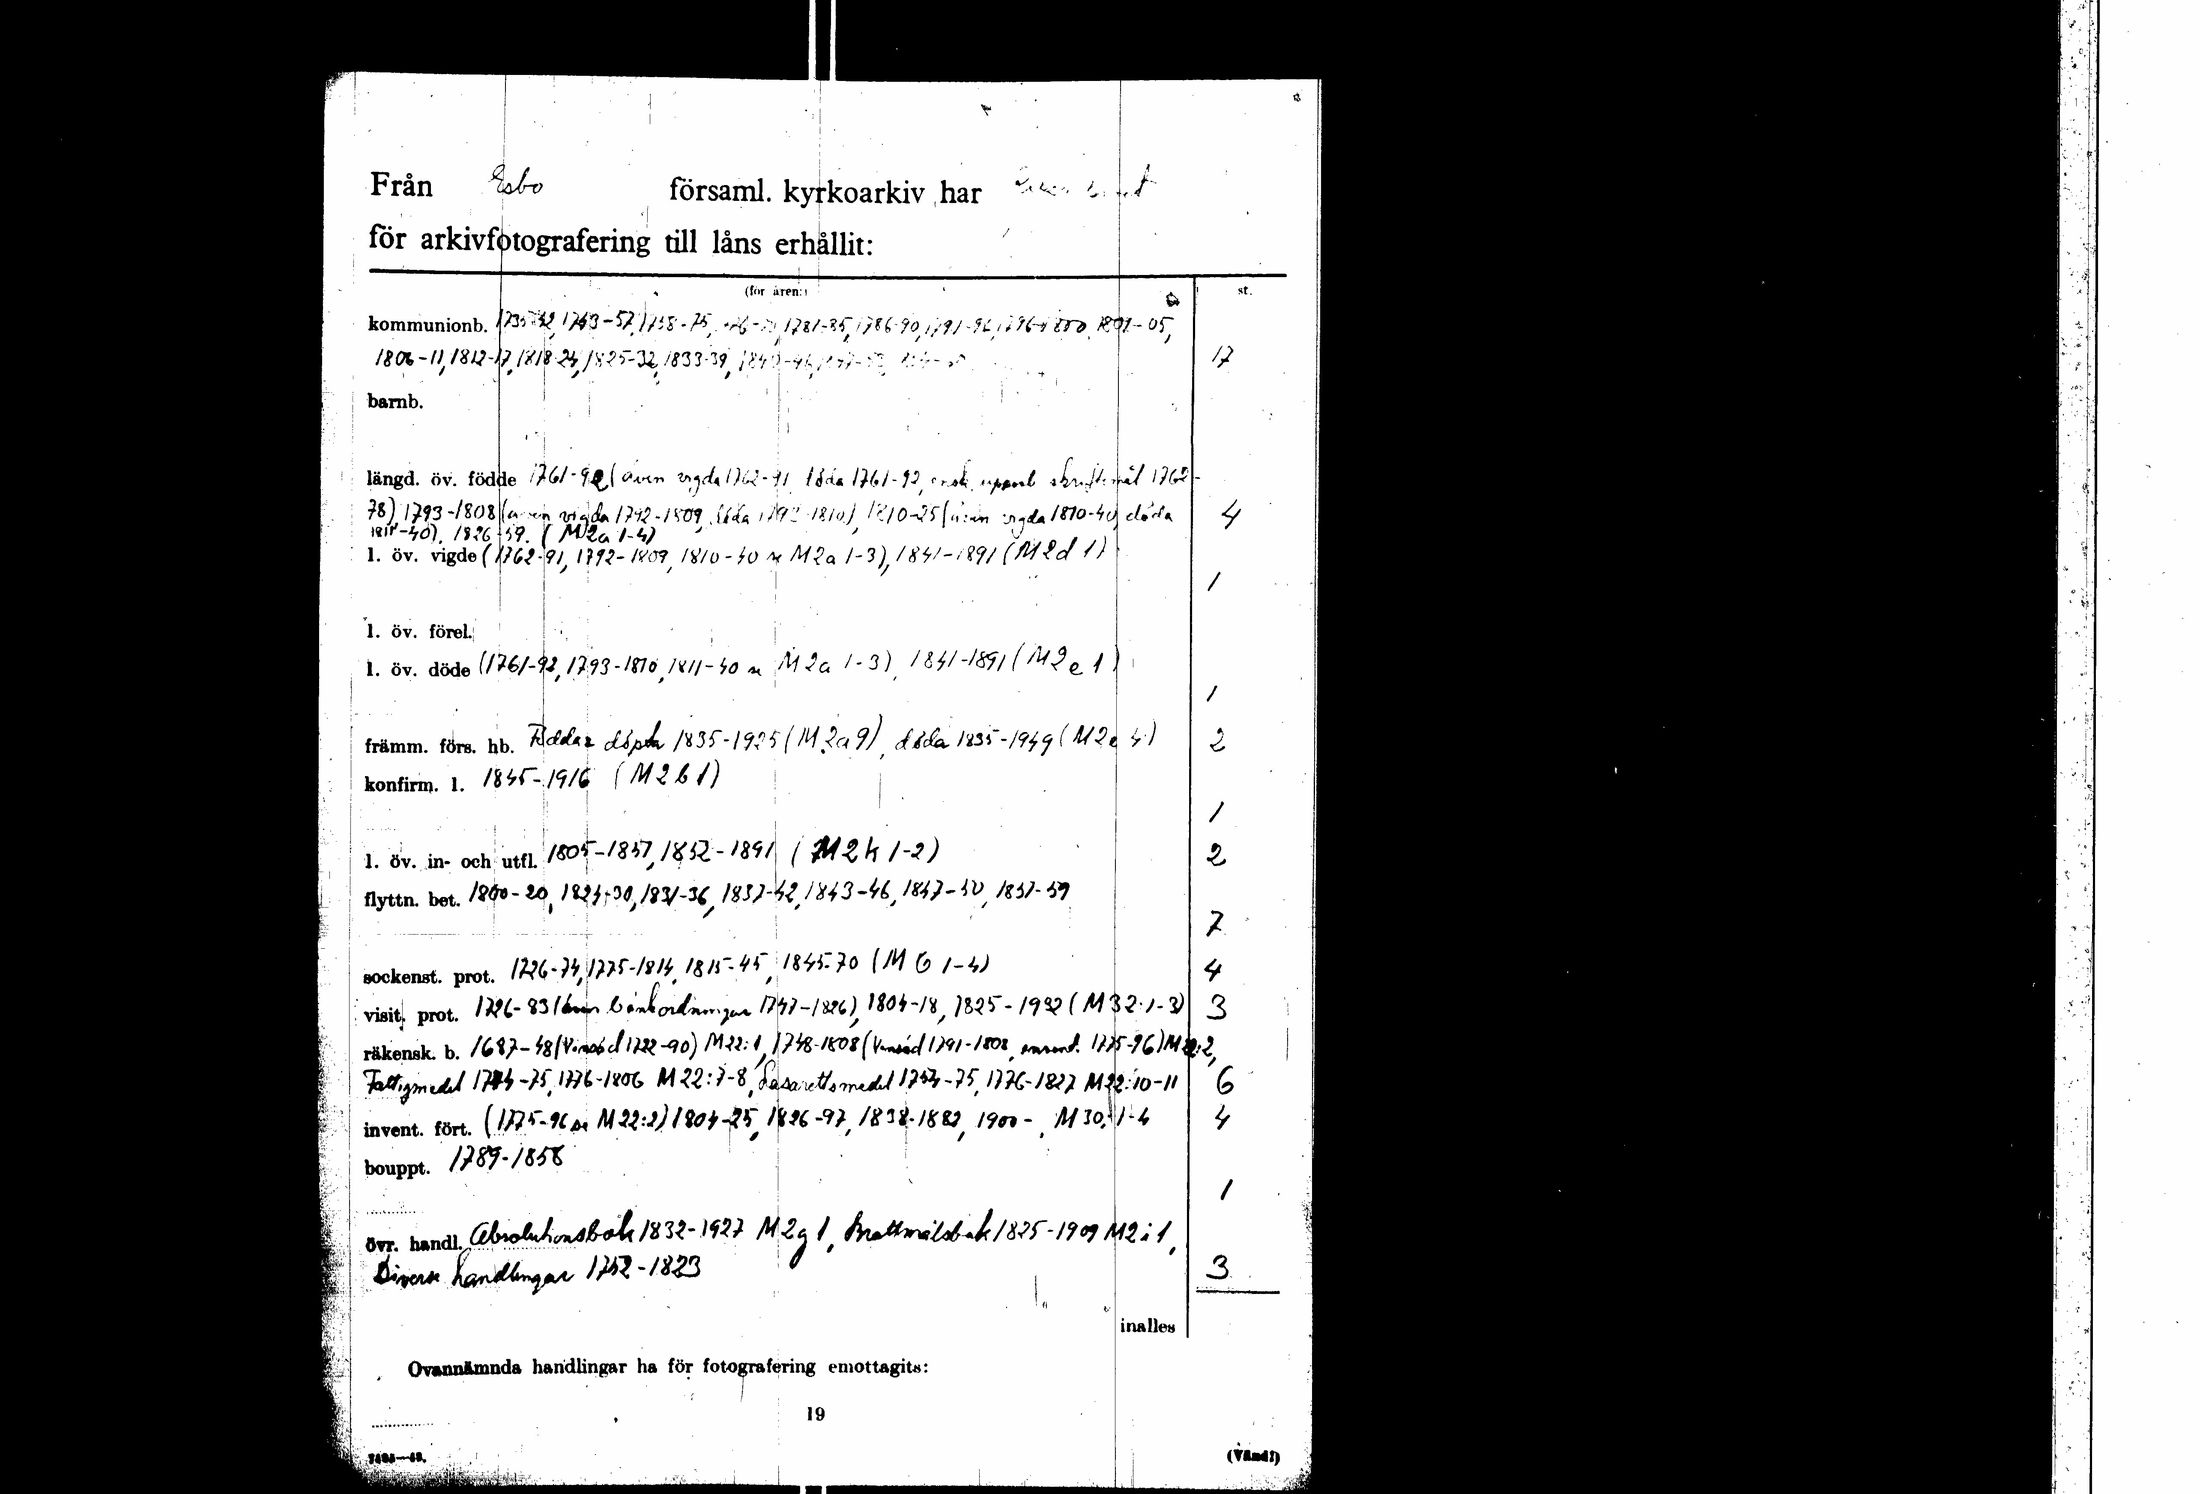 Från Esbo församl. kyrkoarkiv har
för arkivfotografering till låns erhållit:
(för åren:) st.
kommunionb. 1735-42, 1743-57, 1758-75, 1781-85, 1786-90, 1791-96, 1796-1800, 1801-05,
1806-11, 1812-17, 1818-24, 1825-32, 1833-39, 17
barnb.
längd. öv. födde 1761-92 (även vigda 1762-91, döda 1761-92, ensk. uppenb. skriftemål 1762-
78) 1793-1808 (även vigda 1792-1809, döda 1793-1810), 1810-25 (även vigda 1810-40, döda 4
1811-40), 1826-59. (M2a 1-4)
l. öv. vigde (1762-91, 1792-1809, 1810-40 se M2a 1-3), 1841-1891 (M2d 1)
1
l. öv. förel.
l. öv. döde (1761-92, 1793-1810, 1811-40 se M2a 1-3), 1841-1891 (M2e 1)
1
främm. förs. hb. döpta 1835-1925 (M2a9), döda 1835-1949 (M2e 4) 2
konfirm. l. 1845-1916 (M2b1)
1
l. öv. in- och utfl. 1805-1851, 1852-1891 (M2k 1-2) 2
flyttn. bet. 1800-20, 1824-30, 1831-36, 1837-42, 1843-46, 1847-50, 1851-59
7
sockenst. prot. 1726-74, 1775-1814, 1815-45, 1845-70 (M6 1-4) 4
visit. prot. 1726-83 (även bänkordningar 1747-1826), 1804-18, 1825-1932 (M32:1-3) 3
räkensk. b. 1687-48 (Vinsåd 1722-90) M22:1, 1748-1808 (Vinsåd 1791-1808, invent. 1775-96) M22:2,
Fattigmedel 1744-75, 1776-1806 M22:7-8, Lasarettsmedel 1754-75, 1776-1827 M22:10-11 6
invent. fört. (1775-96 se M22:2) 1804-25, 1826-97, 1838-1882, 1900- , M30:1-4 4
bouppt. 1789-1858
1
övr. handl. Absolutionsbok 1832-1927 M2g1, Brottmålsbok 1825-1909 M2i1,
Diverse handlingar 1752-1823 3
inalles
Ovannämnda handlingar ha för fotografering emottagits:
19
(Vänd!)